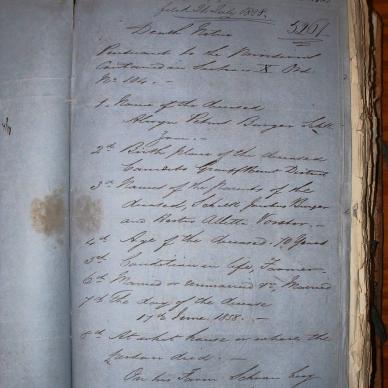 filed 21 July 1858.
5961
Death Notice
Pursuant to the Provisions
Contained in Section X Ord
No 104. -
1. Name of the deceased
Petrus Burger
2d Birth Place of the deceased
Camdebo Graaff Reinet District
3d Names of the Parents of the
deceased, Schalk Burger
and Hester Aletta Vorster. -
4th Age of the deceased. 70 Years
5th Condition in life, Farmer -
6th Married or unmarried &c, Married
7th The day of the decease
17th June 1858. -
8th At what house or where the
Person died. -
On his Farm